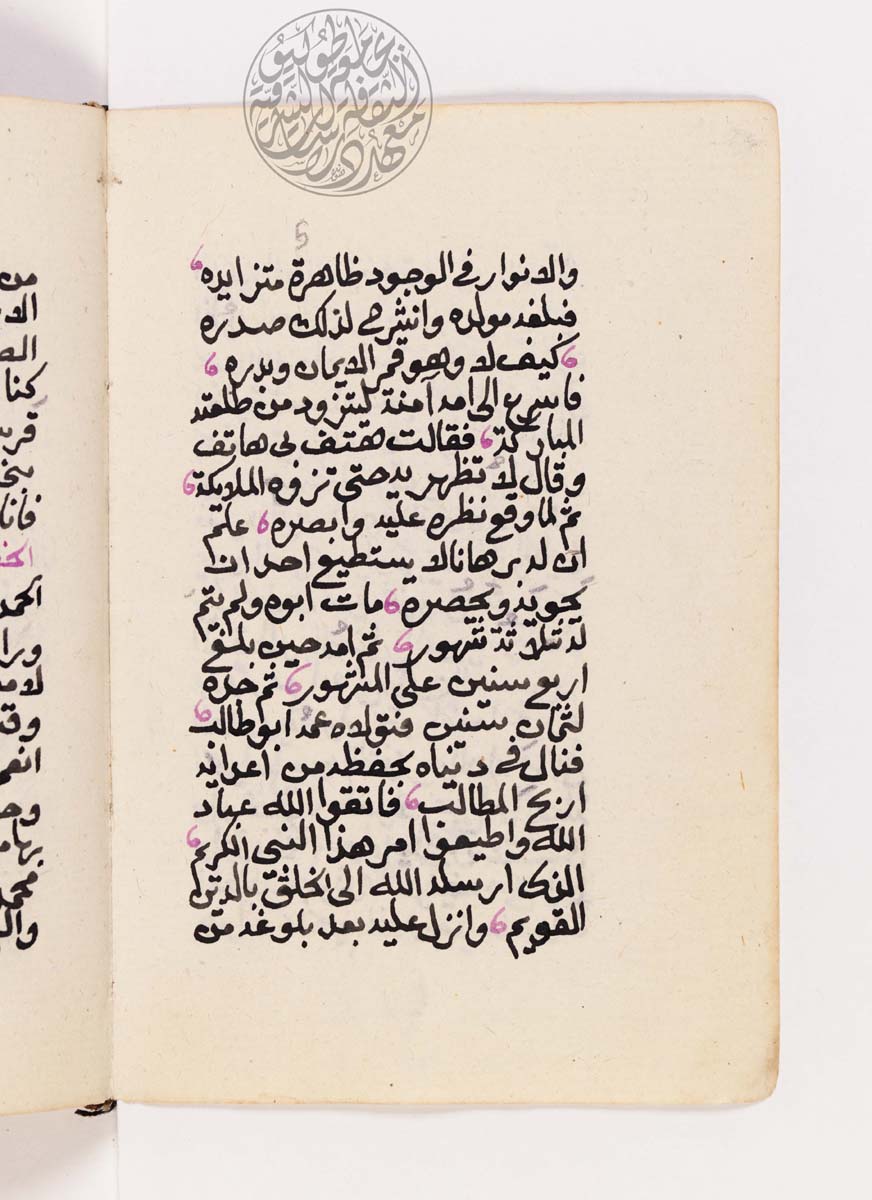 والانوار في الوجود ظاهرة متزايده
فبلغه مولده وانشرح لذلك صدره
كيف لا وهو قمر الايمان وبدره
فاسرع الى امه آمنة ليتزود من طلعته
المباركة فقالت هتف بى هاتف
وقال لا تظهريه حتى تزوه الملايكة
ثم لما وقع نظره عليه وابصره علم
ان له برهانا لا يستطيع احد ان
يحويه ويحصره مات ابوه ولم يتم
له ثلاثة شهور ثم امه حين بلغ
اربع سنين على المشهور ثم جده
لثمان سنين فتولاه عمه ابو طالب
فنال في دنياه بحفظه من اعدايه
اربح المطالب فاتقوا الله عباد
الله واطيعوا امر هذا النبي الكريم
الذى ارسله الله الى الخلق بالدين
القويم وانزل عليه بعد بلوغه من